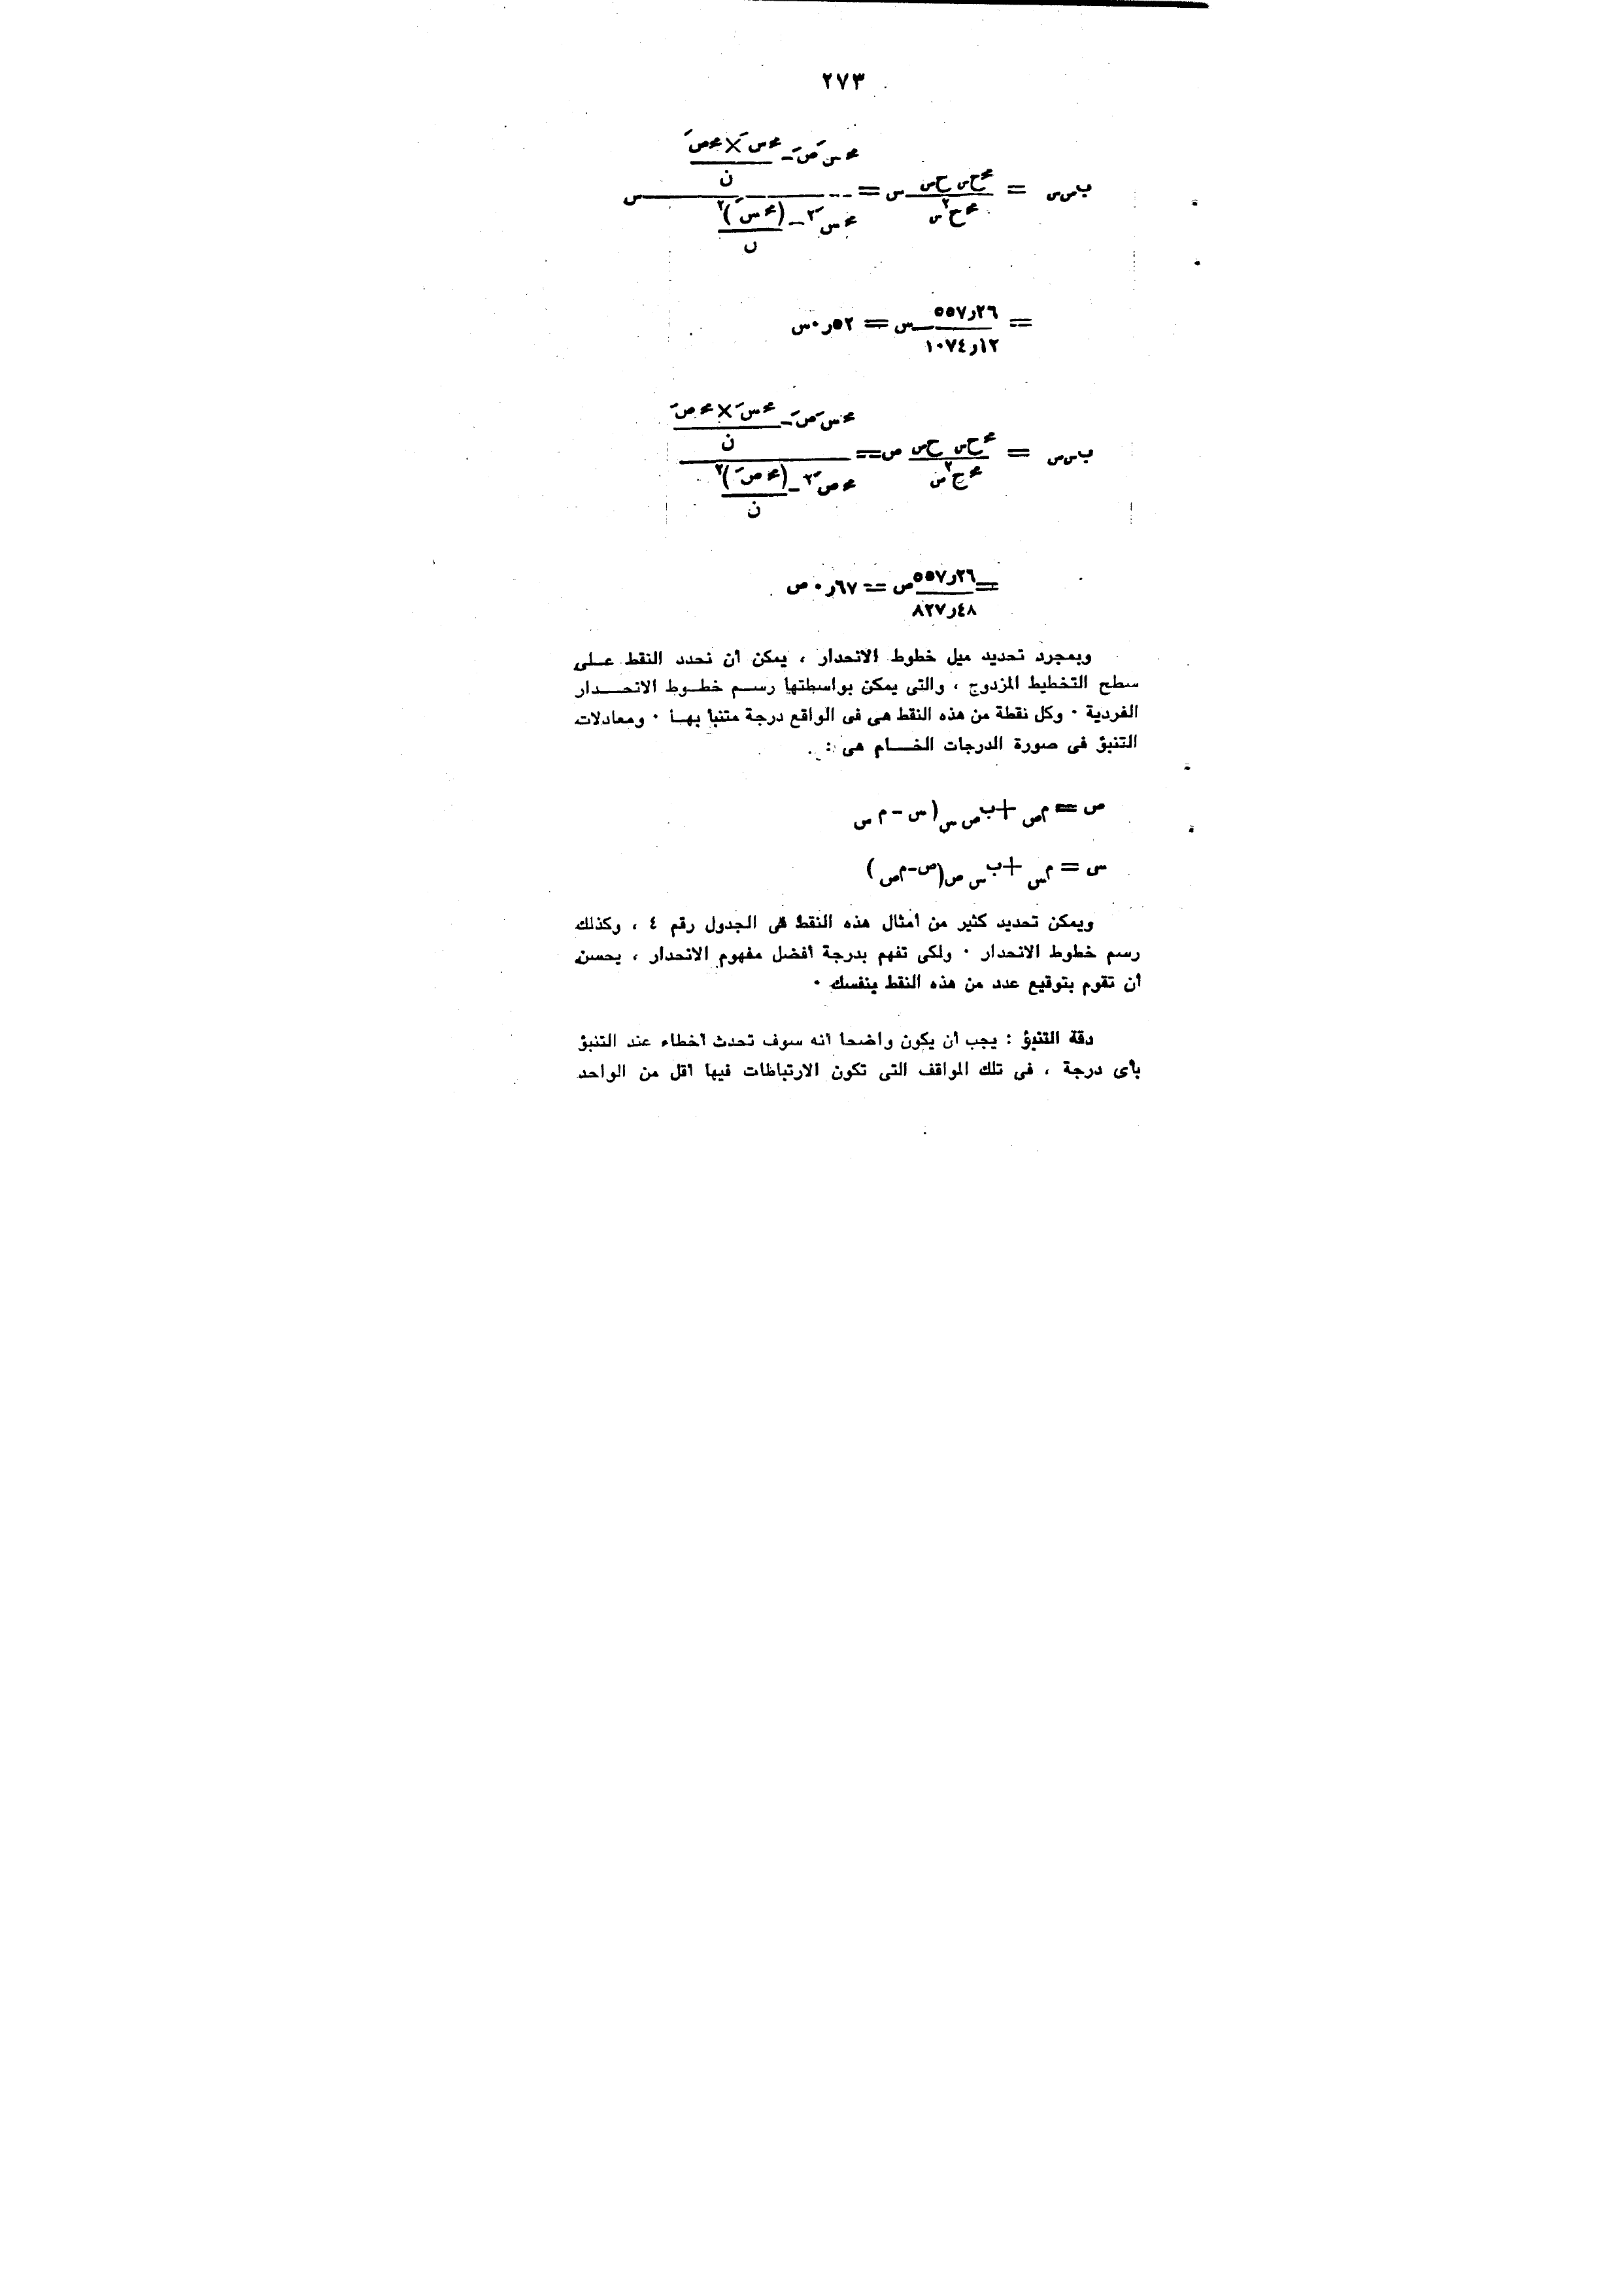 ٢٧٣
ب ص س = مح ح س ح ص / مح ح٢ س س = مح سَ صَ - مح سَ × مح صَ / ن / مح سَ٢ - (مح سَ)٢ / ن س
= ٥٥٧٫٢٦ / ١٠٧٤٫١٢ س = ٠٫٥٢ س
ب س ص = مح ح س ح ص / مح ح٢ ص ص = مح سَ صَ - مح سَ × مح صَ / ن / مح صَ٢ - (مح صَ)٢ / ن
= ٥٥٧٫٢٦ / ٨٢٧٫٤٨ ص = ٠٫٦٧ ص
وبمجرد تحديد ميل خطوط الانحدار ، يمكن أن نحدد النقط عـلى
سطح التخطيط المزدوج ، والتى يمكن بواسطتها رسـم خطـوط الانحـدار
الفردية ٠ وكل نقطة من هذه النقط هى فى الواقع درجة متنبأ بهـا ٠ ومعادلات
التنبؤ فى صورة الدرجات الخـام هى :
ص = م ص + ب ص س (س - م س
س = م س + ب س ص (ص - م ص)
ويمكن تحديد كثير من أمثال هذه النقط فى الجدول رقم ٤ ، وكذلك
رسم خطوط الانحدار ٠ ولكى تفهم بدرجة أفضل مفهوم الانحدار ، يحسن
أن تقوم بتوقيع عدد من هذه النقط بنفسك ٠
دقة التنبؤ : يجب أن يكون واضحا أنه سوف تحدث أخطاء عند التنبؤ
بأى درجة ، فى تلك المواقف التى تكون الارتباطات فيها أقل من الواحد